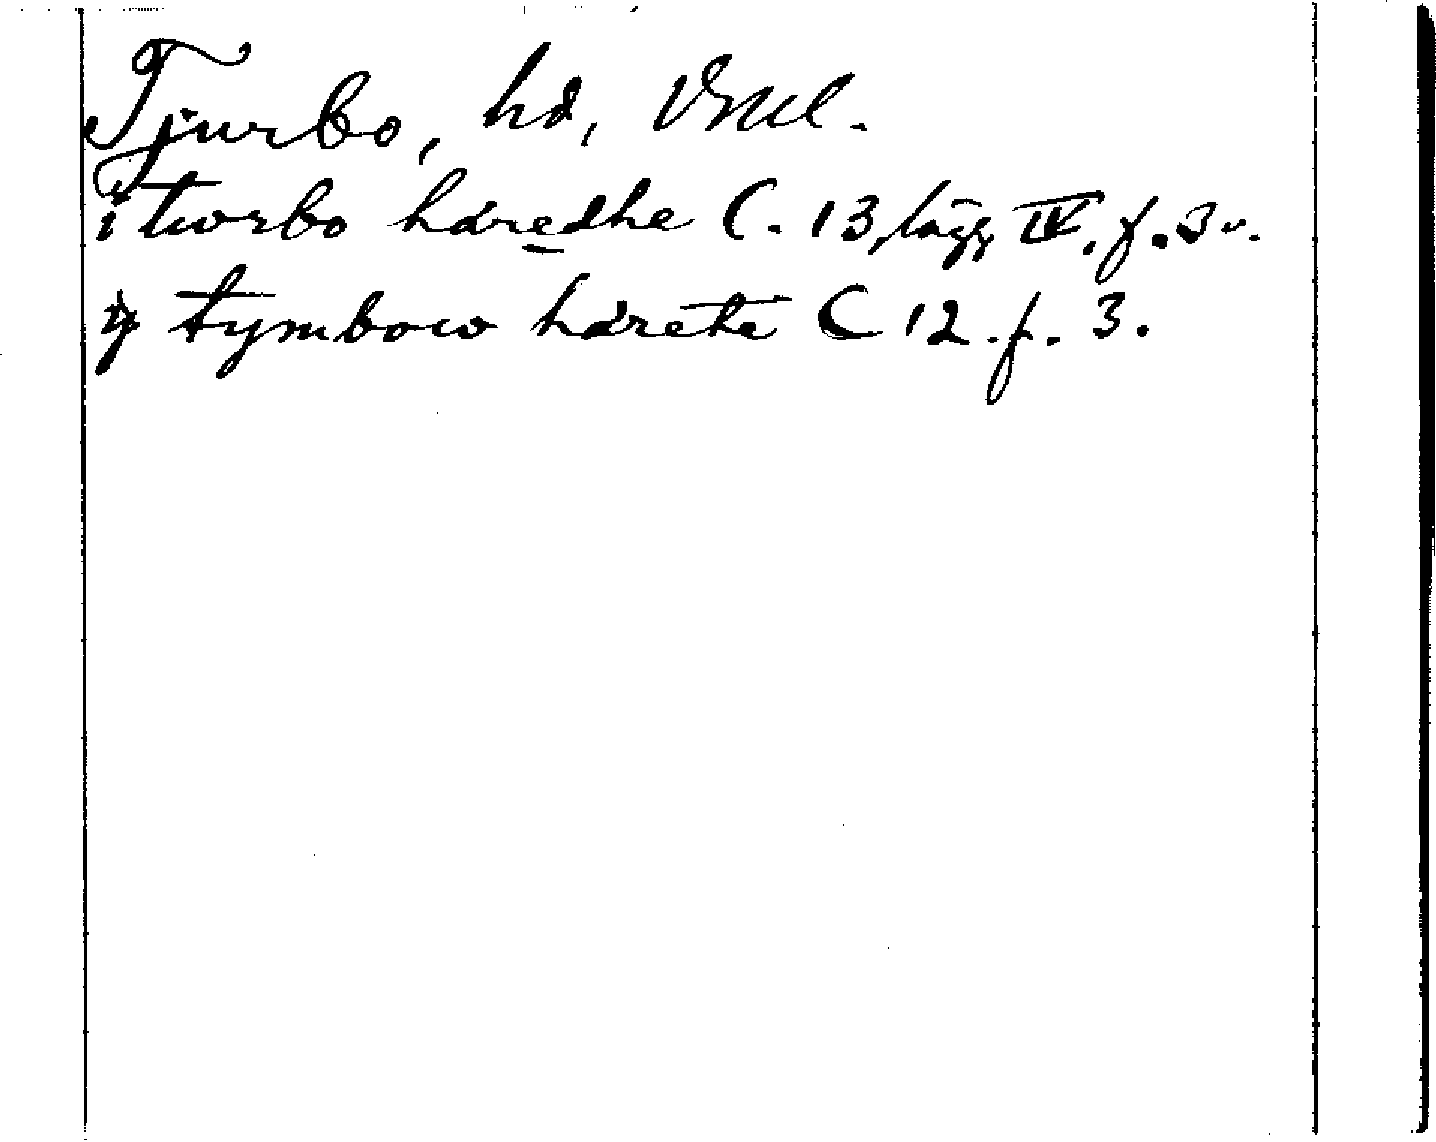 Tjurbo, hd, Vml.
i tiworbo häredhe C. 13, lägg IV. f. 3 v.
ij tymbow härete C 12. f. 3.